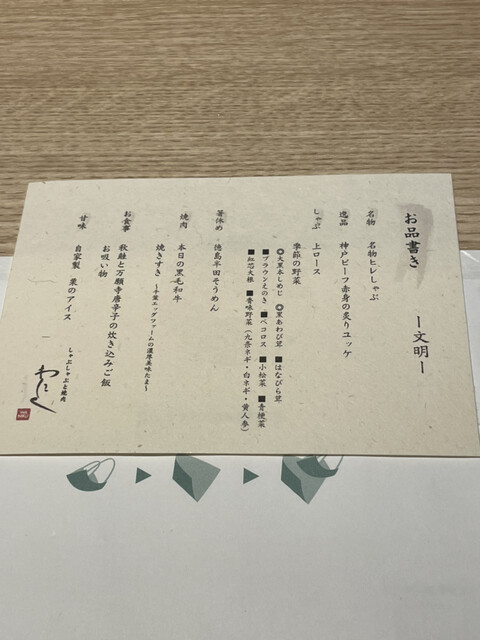 お品書き
ー文明ー
名物 名物ヒレしゃぶ
逸品 神戸ビーフ赤身の炙りユッケ
しゃぶ 上ロース
季節の野菜
◎大黒本しめじ ◎黒あわび茸 ■はなびら茸
■ブラウンえのき ■ペコロス ■小松菜 ■青梗菜
■紅芯大根 ■香味野菜(九条ネギ・白ネギ・黄人参)
箸休め 徳島半田そうめん
焼肉 本日の黒毛和牛
焼きすき ～千葉エッグファームの濃厚美味たま～
お食事 秋鮭と万願寺唐辛子の炊き込みご飯
お吸い物
甘味 自家製 栗のアイス
しゃぶしゃぶと焼肉